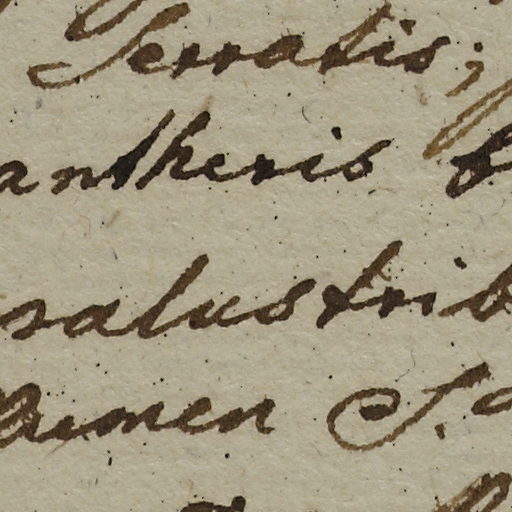 Serratis;
antheris
salustrib
numen S.